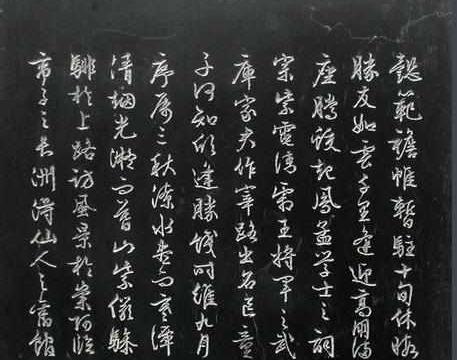 懿範襜帷暫駐十旬休暇
勝友如雲千里逢迎高朋滿
座騰蛟起鳳孟學士之詞
宗紫電清霜王將軍之武
庫家君作宰路出名區童
子何知躬逢勝餞時維九月
序屬三秋潦水盡而寒潭
清烟光凝而暮山紫儼驂
騑於上路訪風景於崇阿臨
帝子之長洲得仙人之舊館